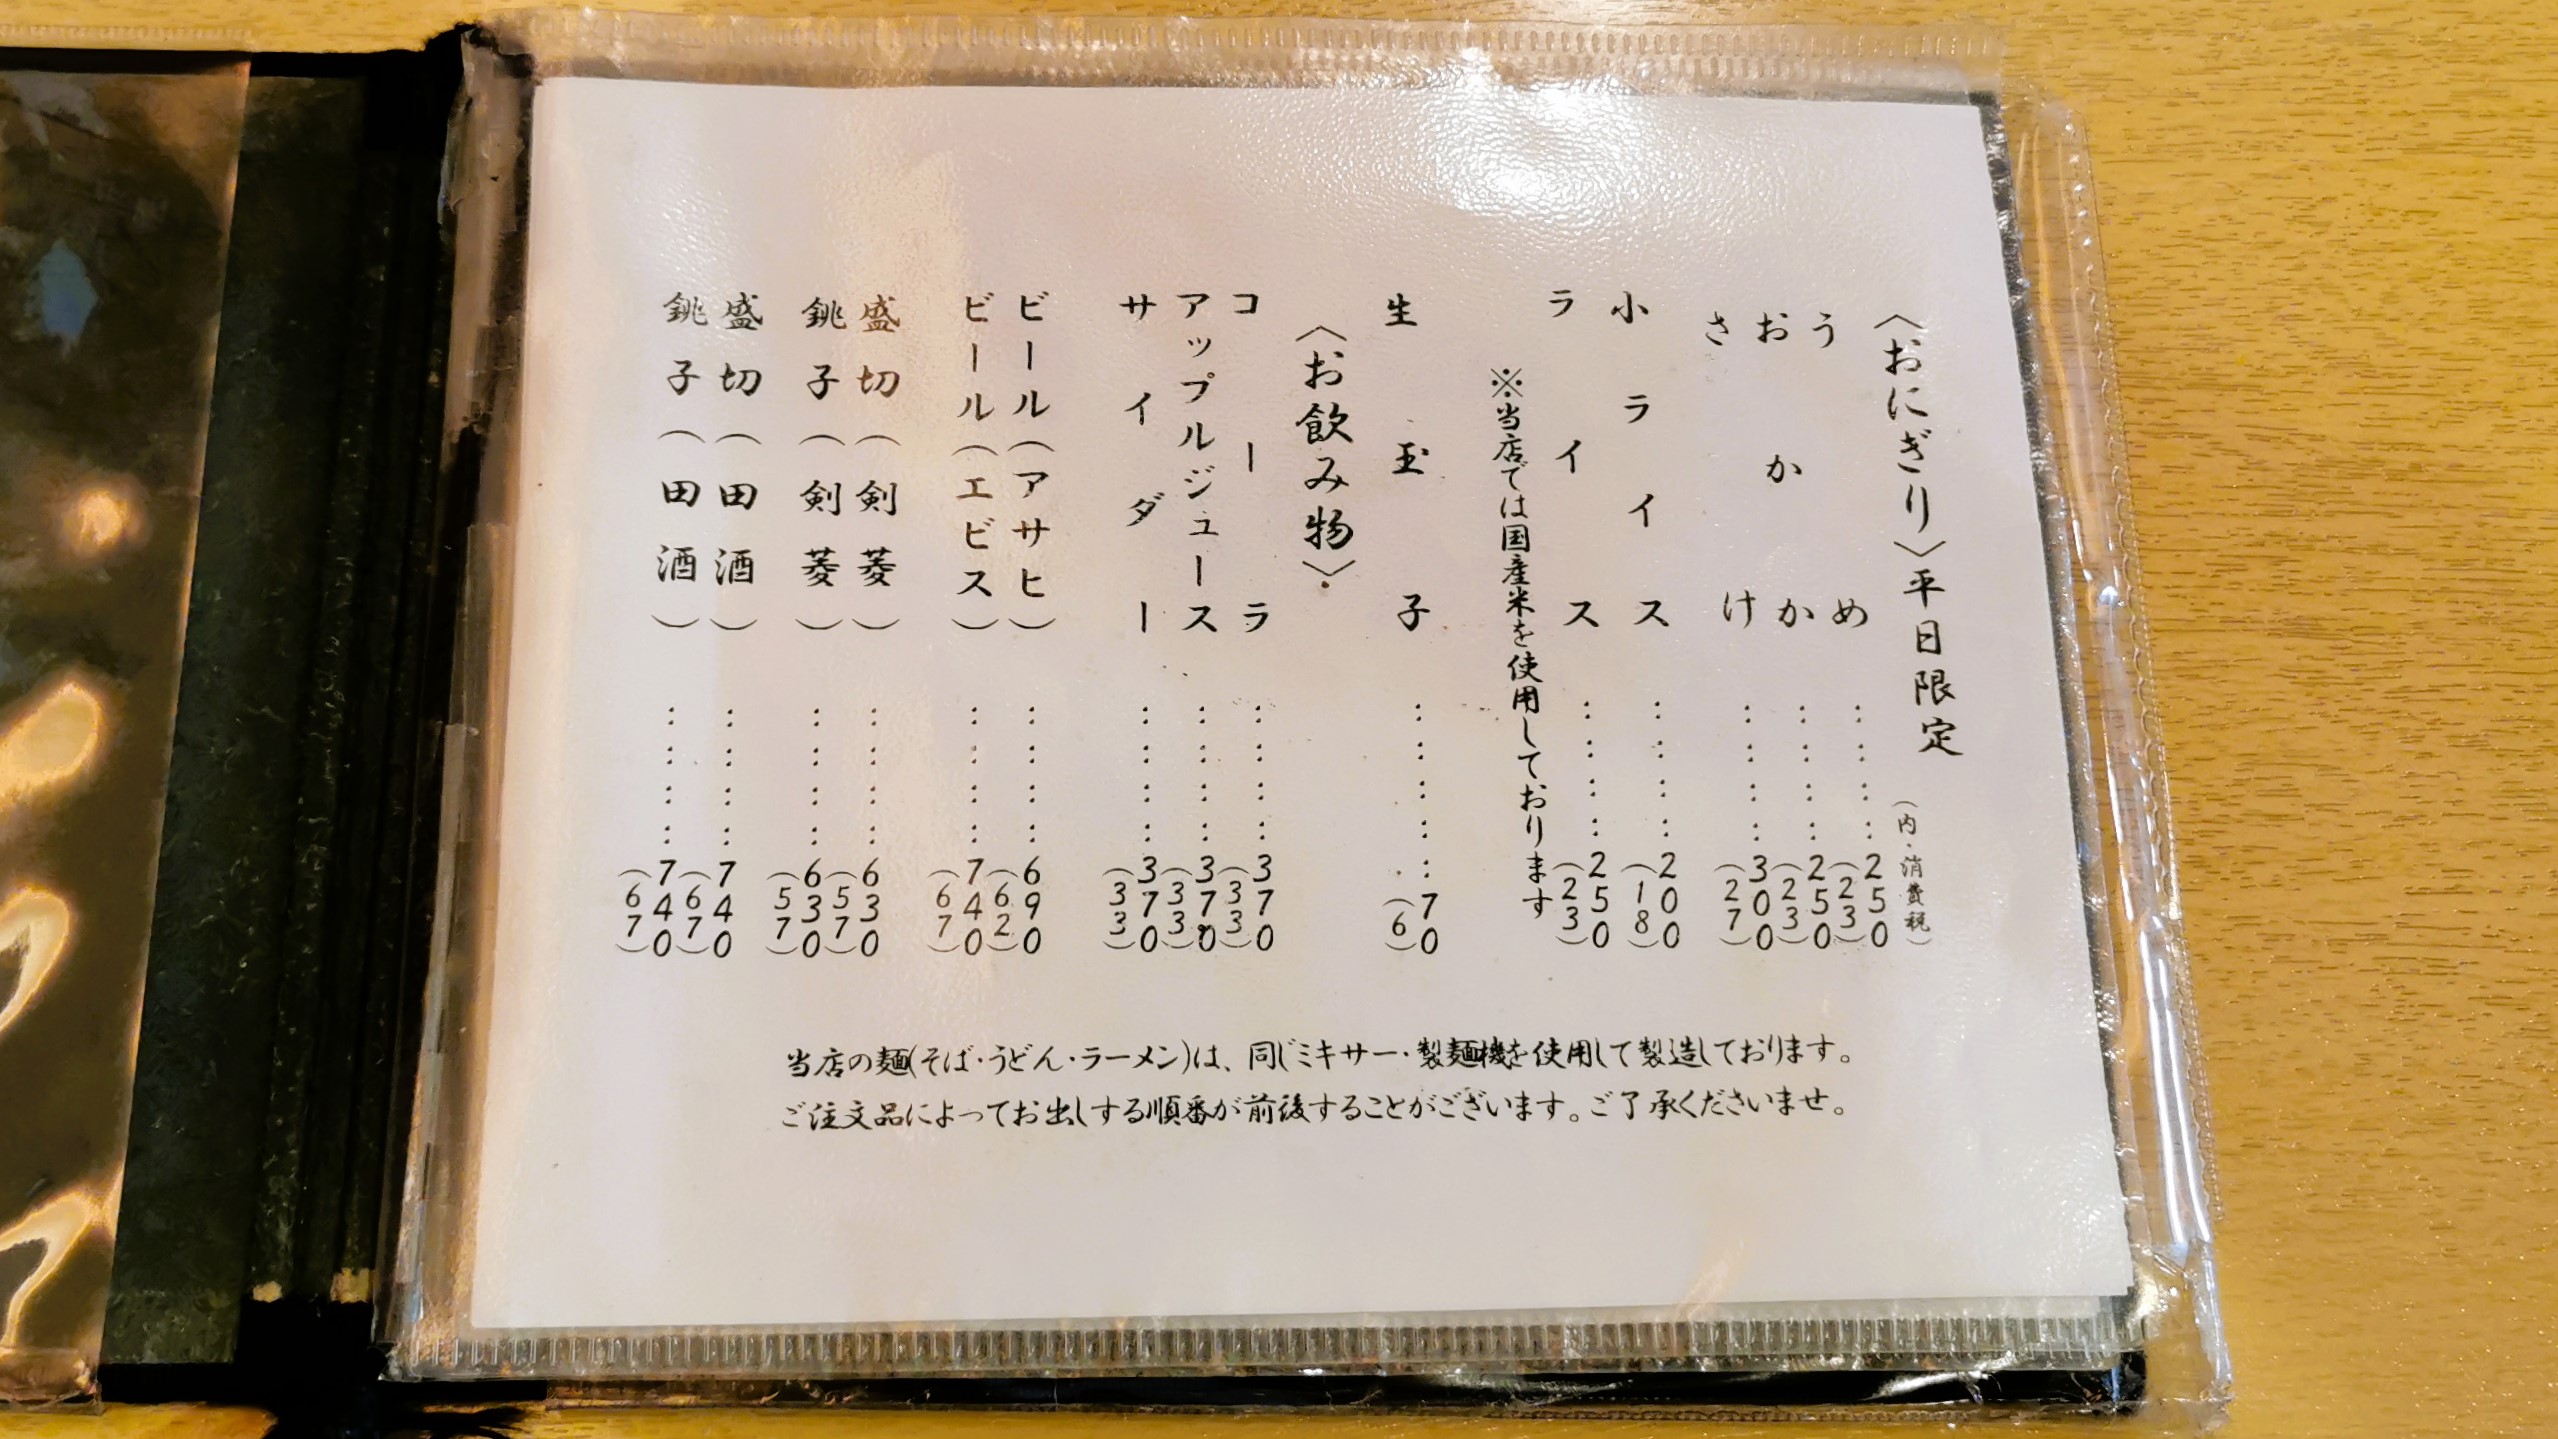 〈おにぎり〉平日限定 (内・消費税)
うめ……………250(23)
おかか……………250(23)
さけ……………300(27)
小ライス……………200(18)
ライス……………250(23)
※当店では国産米を使用しております
生玉子……………70(6)
〈お飲み物〉
コーラ……………370(33)
アップルジュース……………370(33)
サイダー……………370(33)
ビール(アサヒ)……………690(62)
ビール(エビス)……………740(67)
盛切(剣菱)……………630(57)
銚子(剣菱)……………630(57)
盛切(田酒)……………740(67)
銚子(田酒)……………740(67)
当店の麺(そば・うどん・ラーメン)は、同じミキサー・製麺機を使用して製造しております。
ご注文品によってお出しする順番が前後することがございます。ご了承くださいませ。